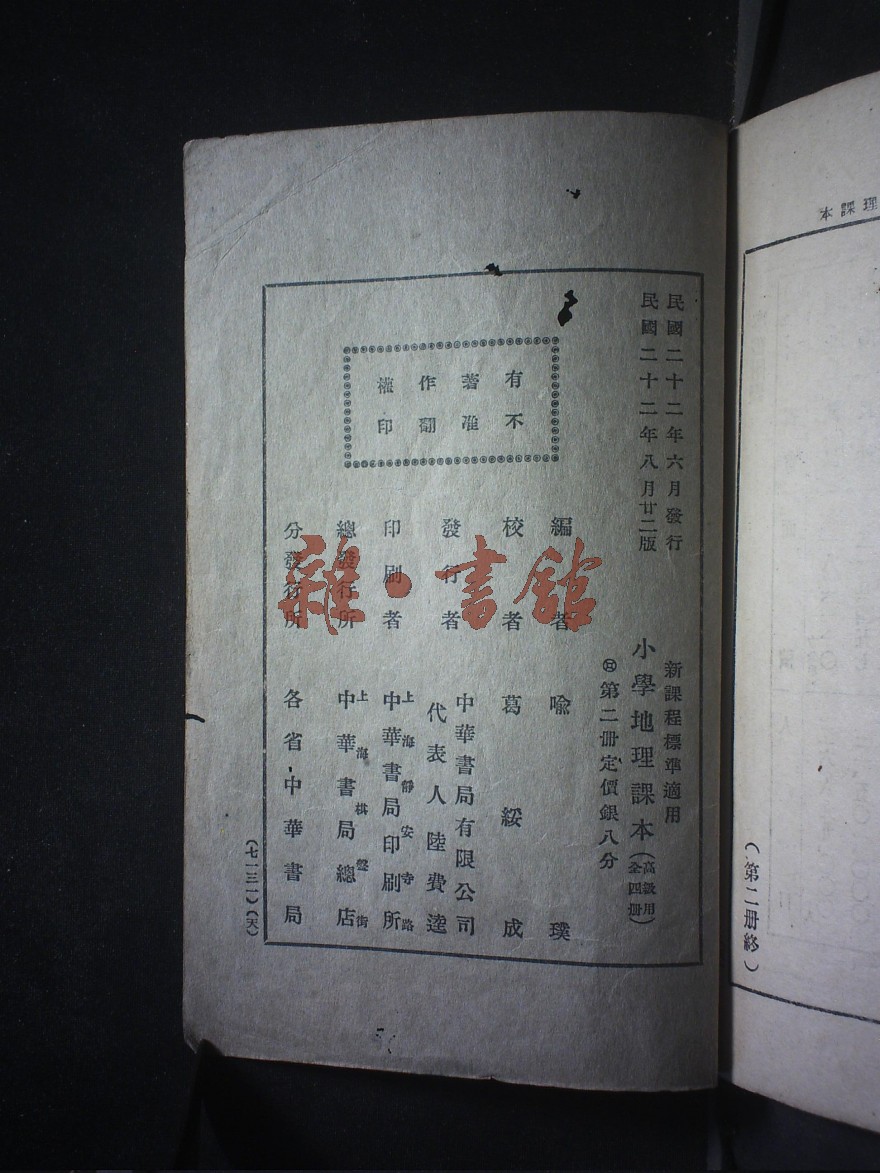 理課本
(第二册終)
民國二十二年六月發行
民國二十二年八月廿二版
新課程標準適用
小學地理課本(高級用全四册)
第二册定價銀八分
有著作權
不准翻印
編者 喩璞
校者 葛綏成
發行者 中華書局有限公司
代表人陸費逵
印刷者 上海靜安寺路
中華書局印刷所
總發行所 上海棋盤街
中華書局總店
分發行所 各省中華書局
(七一三一)(天)
雜·書館